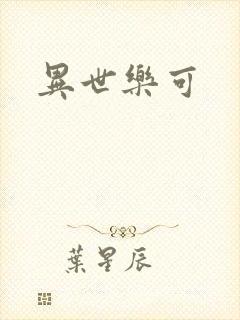 異世樂可
葉星辰